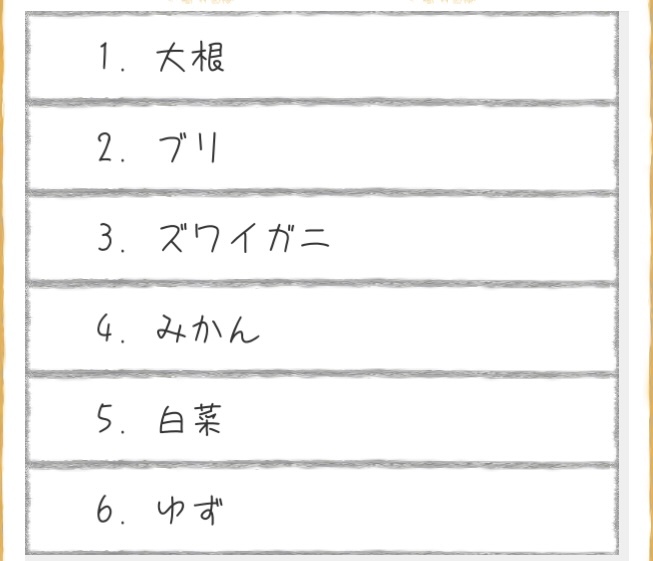 1. 大根
2. ブリ
3. ズワイガニ
4. みかん
5. 白菜
6. ゆず